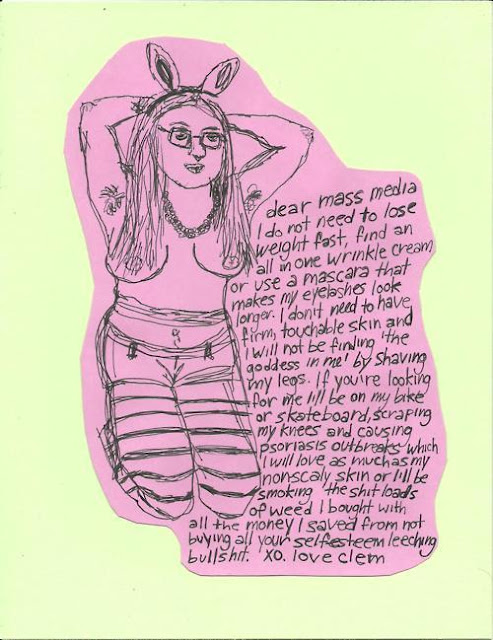 dear mass media
I do not need to lose
weight fast, find an
all in one wrinkle cream
or use a mascara that
makes my eyelashes look
longer. I don't need to have
firm, touchable skin and
I will not be finding 'the
goddess in me' by shaving
my legs. If you're looking
for me I'll be on my bike
or skateboard, scraping
my knees and causing
psoriasis outbreaks which
I will love as much as my
nonscaly skin or I'll be
smoking the shit loads
of weed I bought with
all the money I saved from not
buying all your selfesteem leeching
bullshit. XO. love clem